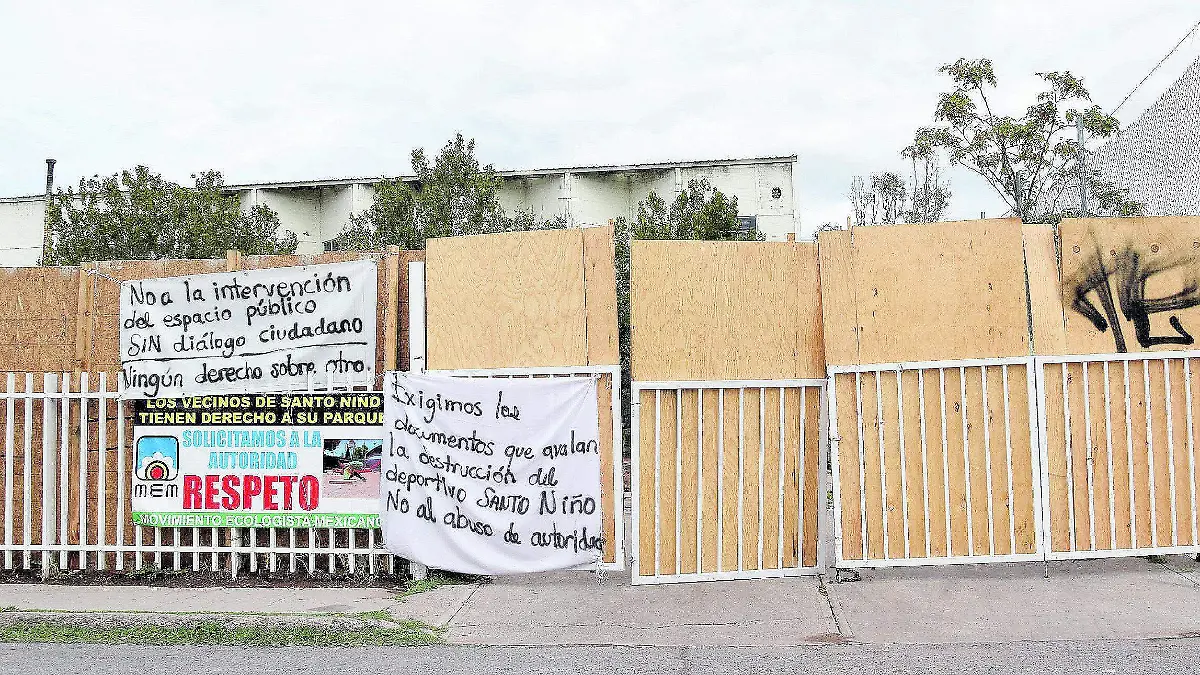 No a la intervención
del espacio público
SIN diálogo ciudadano
Ningún derecho sobre otro.
LOS VECINOS DE SANTO NIÑO
TIENEN DERECHO A SU PARQUE
SOLICITAMOS A LA
AUTORIDAD
RESPETO
MEM
MOVIMIENTO ECOLOGISTA MEXICANO
Exigimos los
documentos que avalan
la destrucción del
deportivo SANTO NIÑO
No al abuso de autoridad